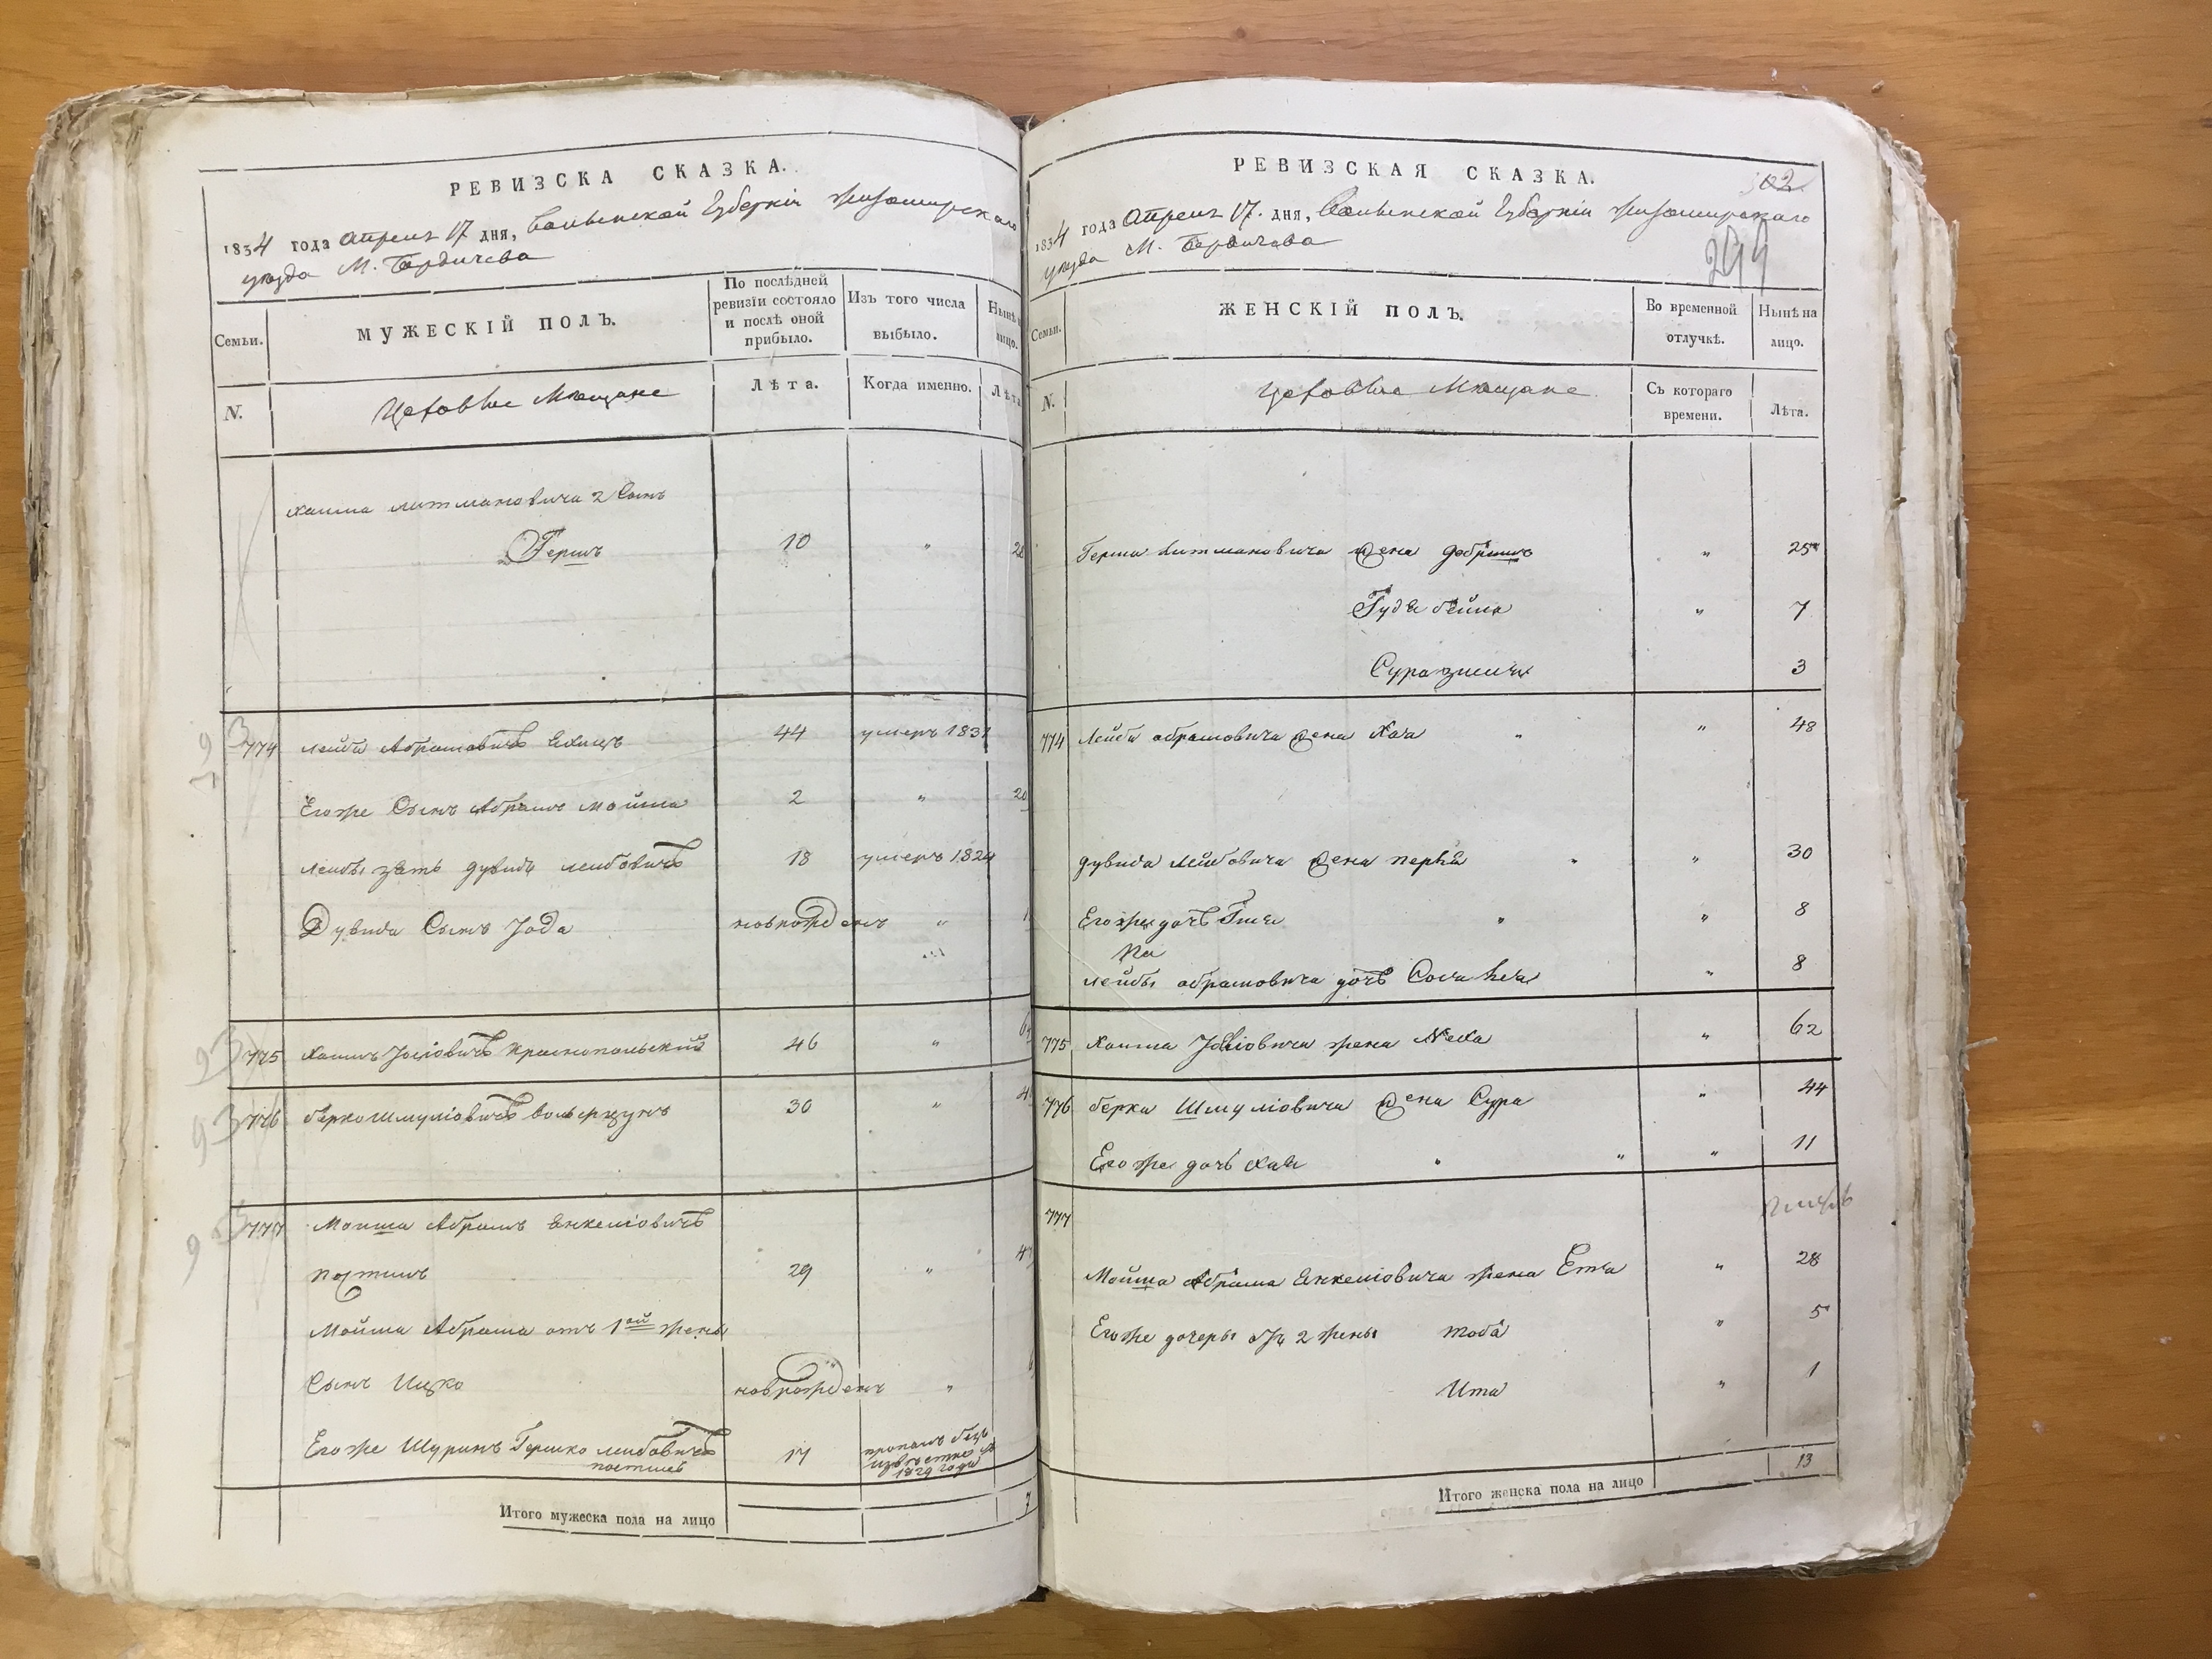 РЕВИЗСКА СКАЗКА.
1834 года Апреля 17 дня, Волынской Губерніи Житомирскаго
уезда М. Бердичева
Семьи.
МУЖЕСКІЙ ПОЛЪ.
По послѣдней ревизіи состояло и послѣ оной прибыло.
Изъ того числа выбыло.
Нынѣ
лицо.
N.
Цеховые Мещане
Лѣта.
Когда именно.
Лѣта
Хаима Литмановича 2 Сынъ
Гершъ 10 "
774 Лейба Абрамовичъ 44 умеръ 1831
Егоже Сынъ Абрамъ Мойша 2 " 20
Лейбы зять Дувидъ Лейбовичъ 18 умеръ 1824
Дувида Сынъ Іода новорожденъ "
775 Хаимъ Іосіовичъ Краснопольскій 46 "
776 Берко Шмуліовичъ 30 "
777 Мойша Абрамъ Янкеліовичъ
29 "
Мойша Абрама отъ 1ой жены
Сынъ Ицко новорожденъ "
Егоже Шуринъ Гершко Лейбовичъ 17 пропалъ безъ
известно съ
1829 года
Итого мужеска пола на лицо 7
РЕВИЗСКАЯ СКАЗКА.
302
1834 года Апреля 17. дня, Волынской Губерніи Житомирскаго
уезда М. Бердичева
299
Семьи.
ЖЕНСКІЙ ПОЛЪ.
Во временной отлучкѣ.
Нынѣ на лицо.
N.
Цеховые Мещане.
Съ котораго времени.
Лѣта.
Герша Литмановича жена Добришъ " 25
Гудя бейла " 7
Сура 3
774 Лейбы Абрамовича жена Хая " " 48
Дувида Лейбовича жена Перля " " 30
Егоже дочь " " 8
Лейбы Абрамовича дочь " 8
775 Хаима Іосіовича жена Неха " 62
776 Берка Шмуліовича жена Сура " 44
Егоже дочь Хая " " " 11
777
Мойша Абрама Янкеліовича жена Етя " 28
Егоже дочеры отъ 2 жены Тоба " 5
Ита " 1
Итого женска пола на лицо 13